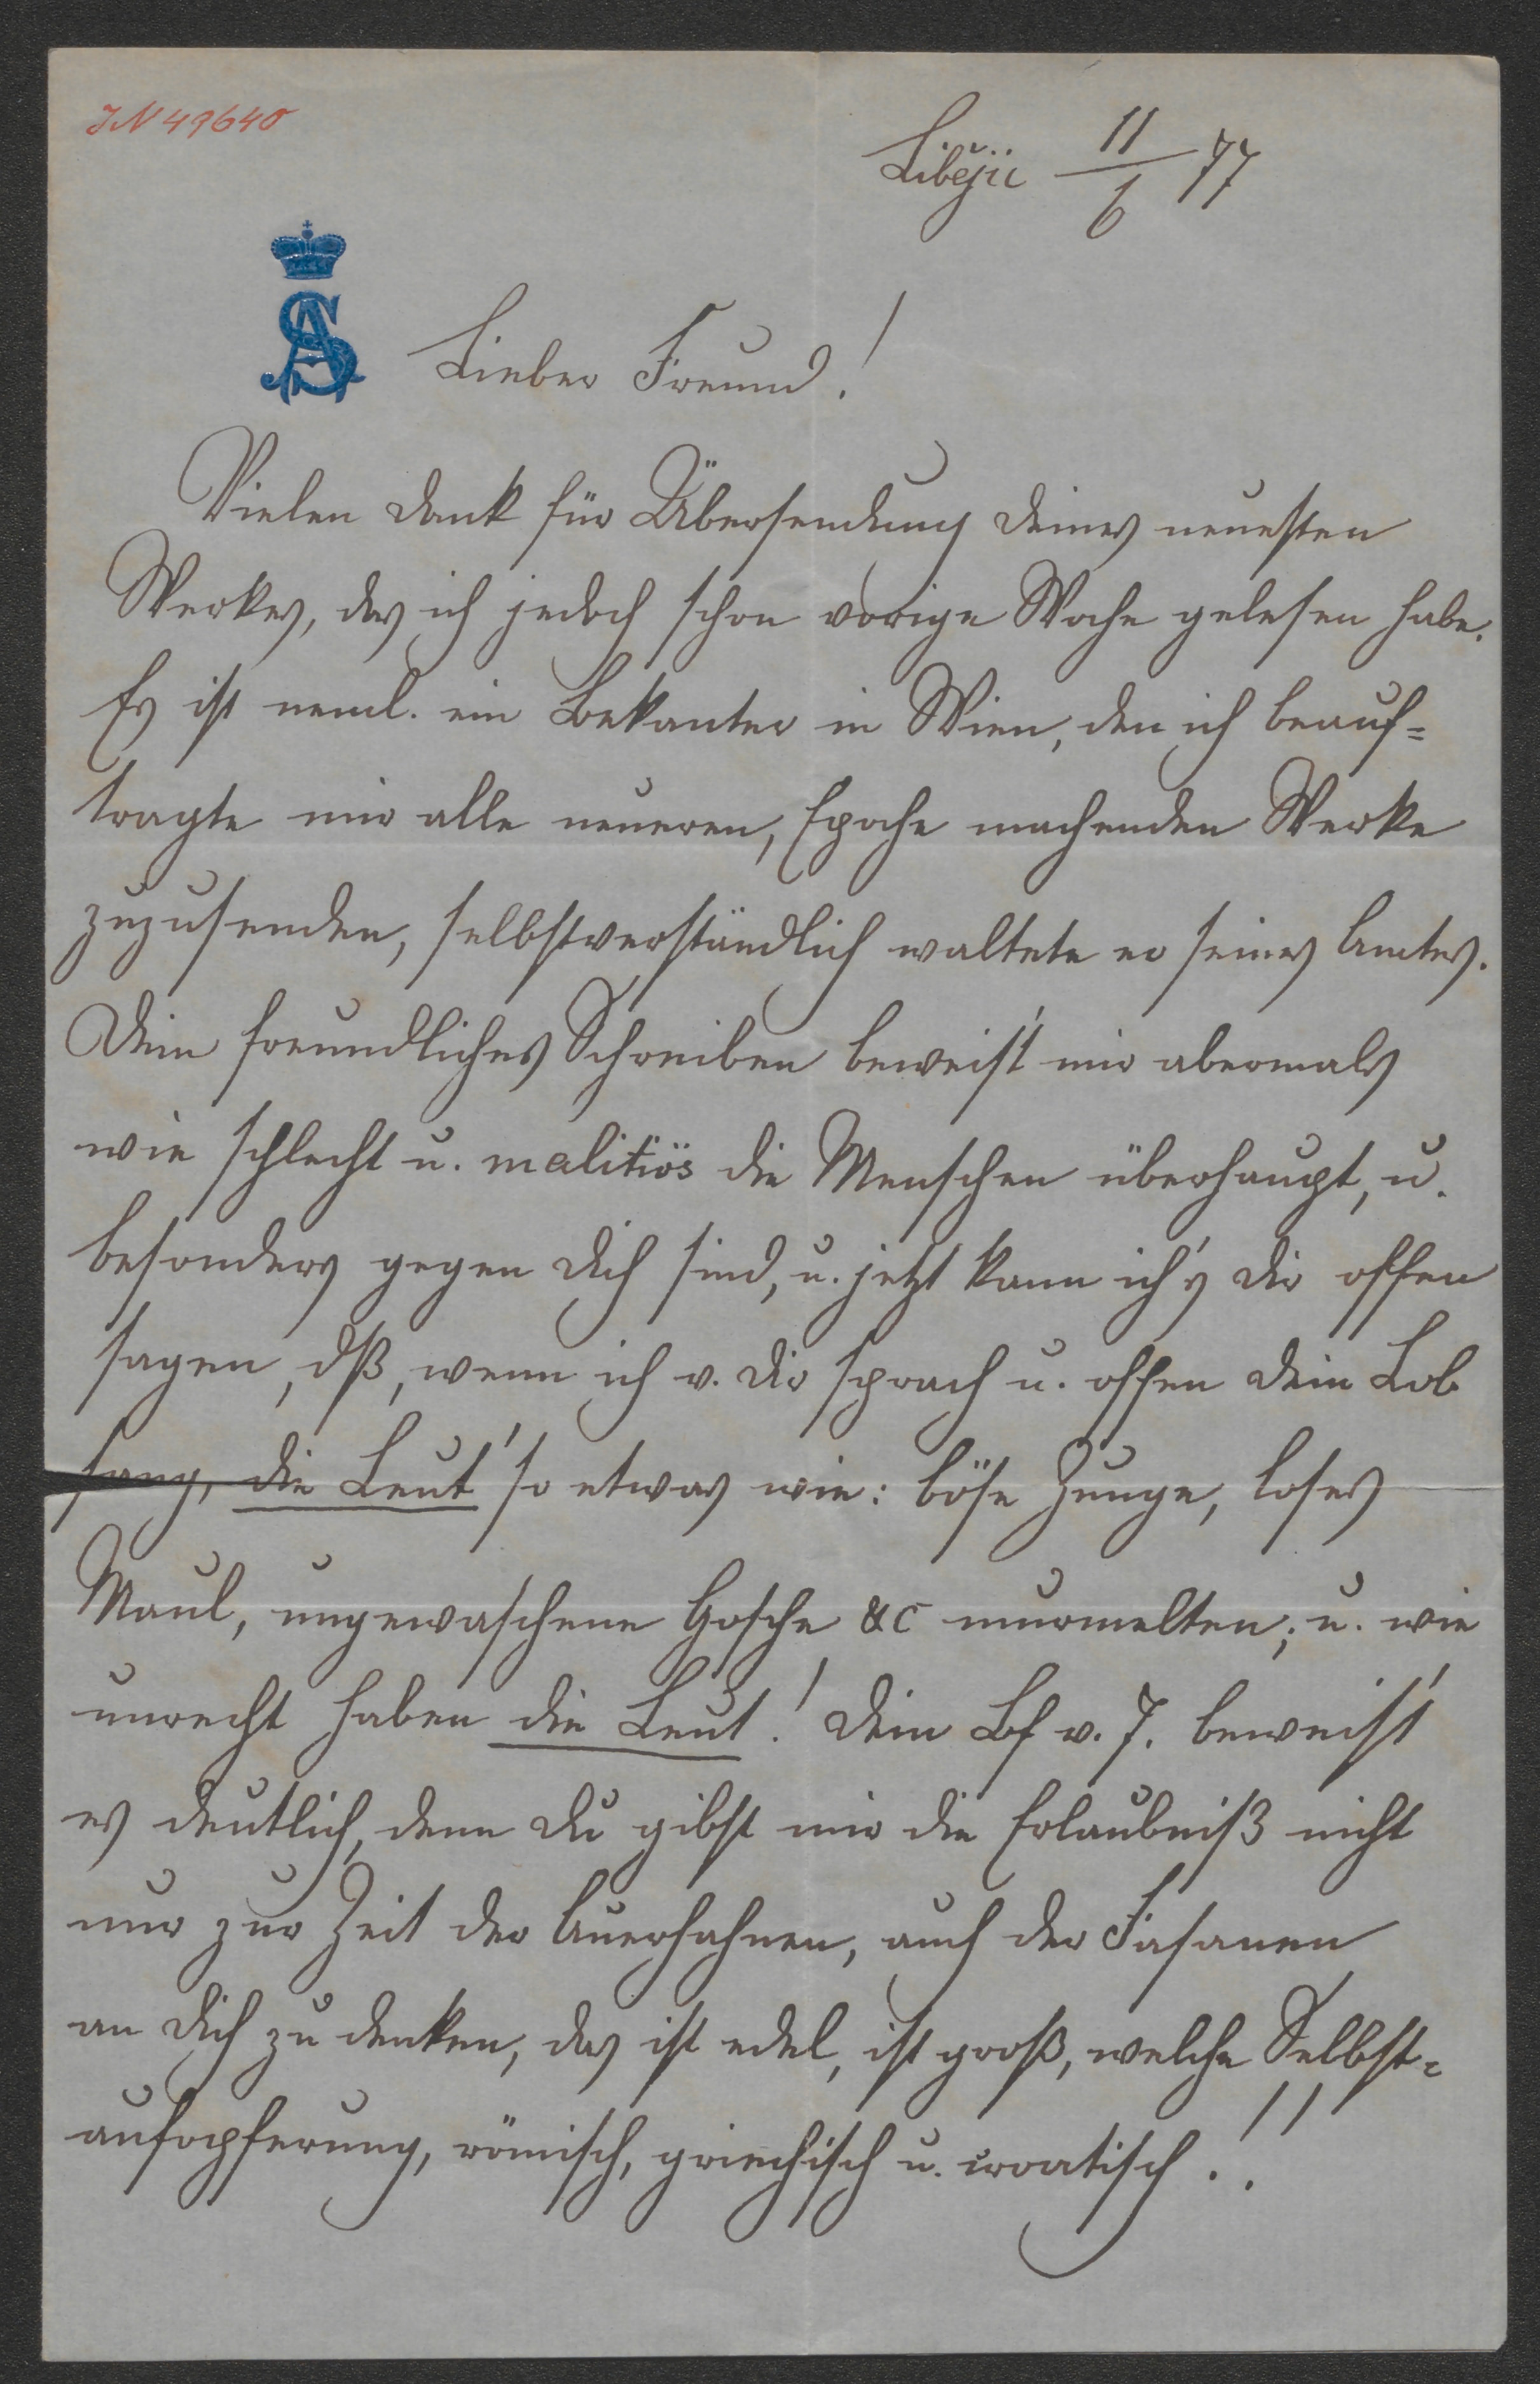 IN 49640
Libějic 11/6 77
AS
Lieber Freund!
Vielen Dank für Übersendung Deines neuesten
Werkes, das ich jedoch schon vorige Woche gelesen habe.
Es ist neml. ein Bekanter in Wien, den ich beauf=
tragte mir alle neueren, Epoche machenden Werke
zuzusenden, selbstverständlich waltete er seines Amtes.
Dein freundliches Schreiben beweist mir abermals
wie schlecht u. malitiös die Menschen überhaupt, u.
besonders gegen Dich sind, u. jetzt kann ich's Dir offen
sagen, dß, wenn ich v. Dir sprach u. offen Dein Lob
sang, die Leut' so etwas wie: böse Zunge, loses
Maul, ungewaschene Gosche &c murmelten; u. wie
unrecht haben die Leut! Dein Bf v. 7. beweist
es deutlich, denn Du gibst mir die Erlaubniß nicht
nur zur Zeit der Auerhahnen, auch der Fasanen
an Dich zu denken, das ist edel, ist groß, welche Selbst=
aufopferung, römisch, griechisch u. croatisch!!